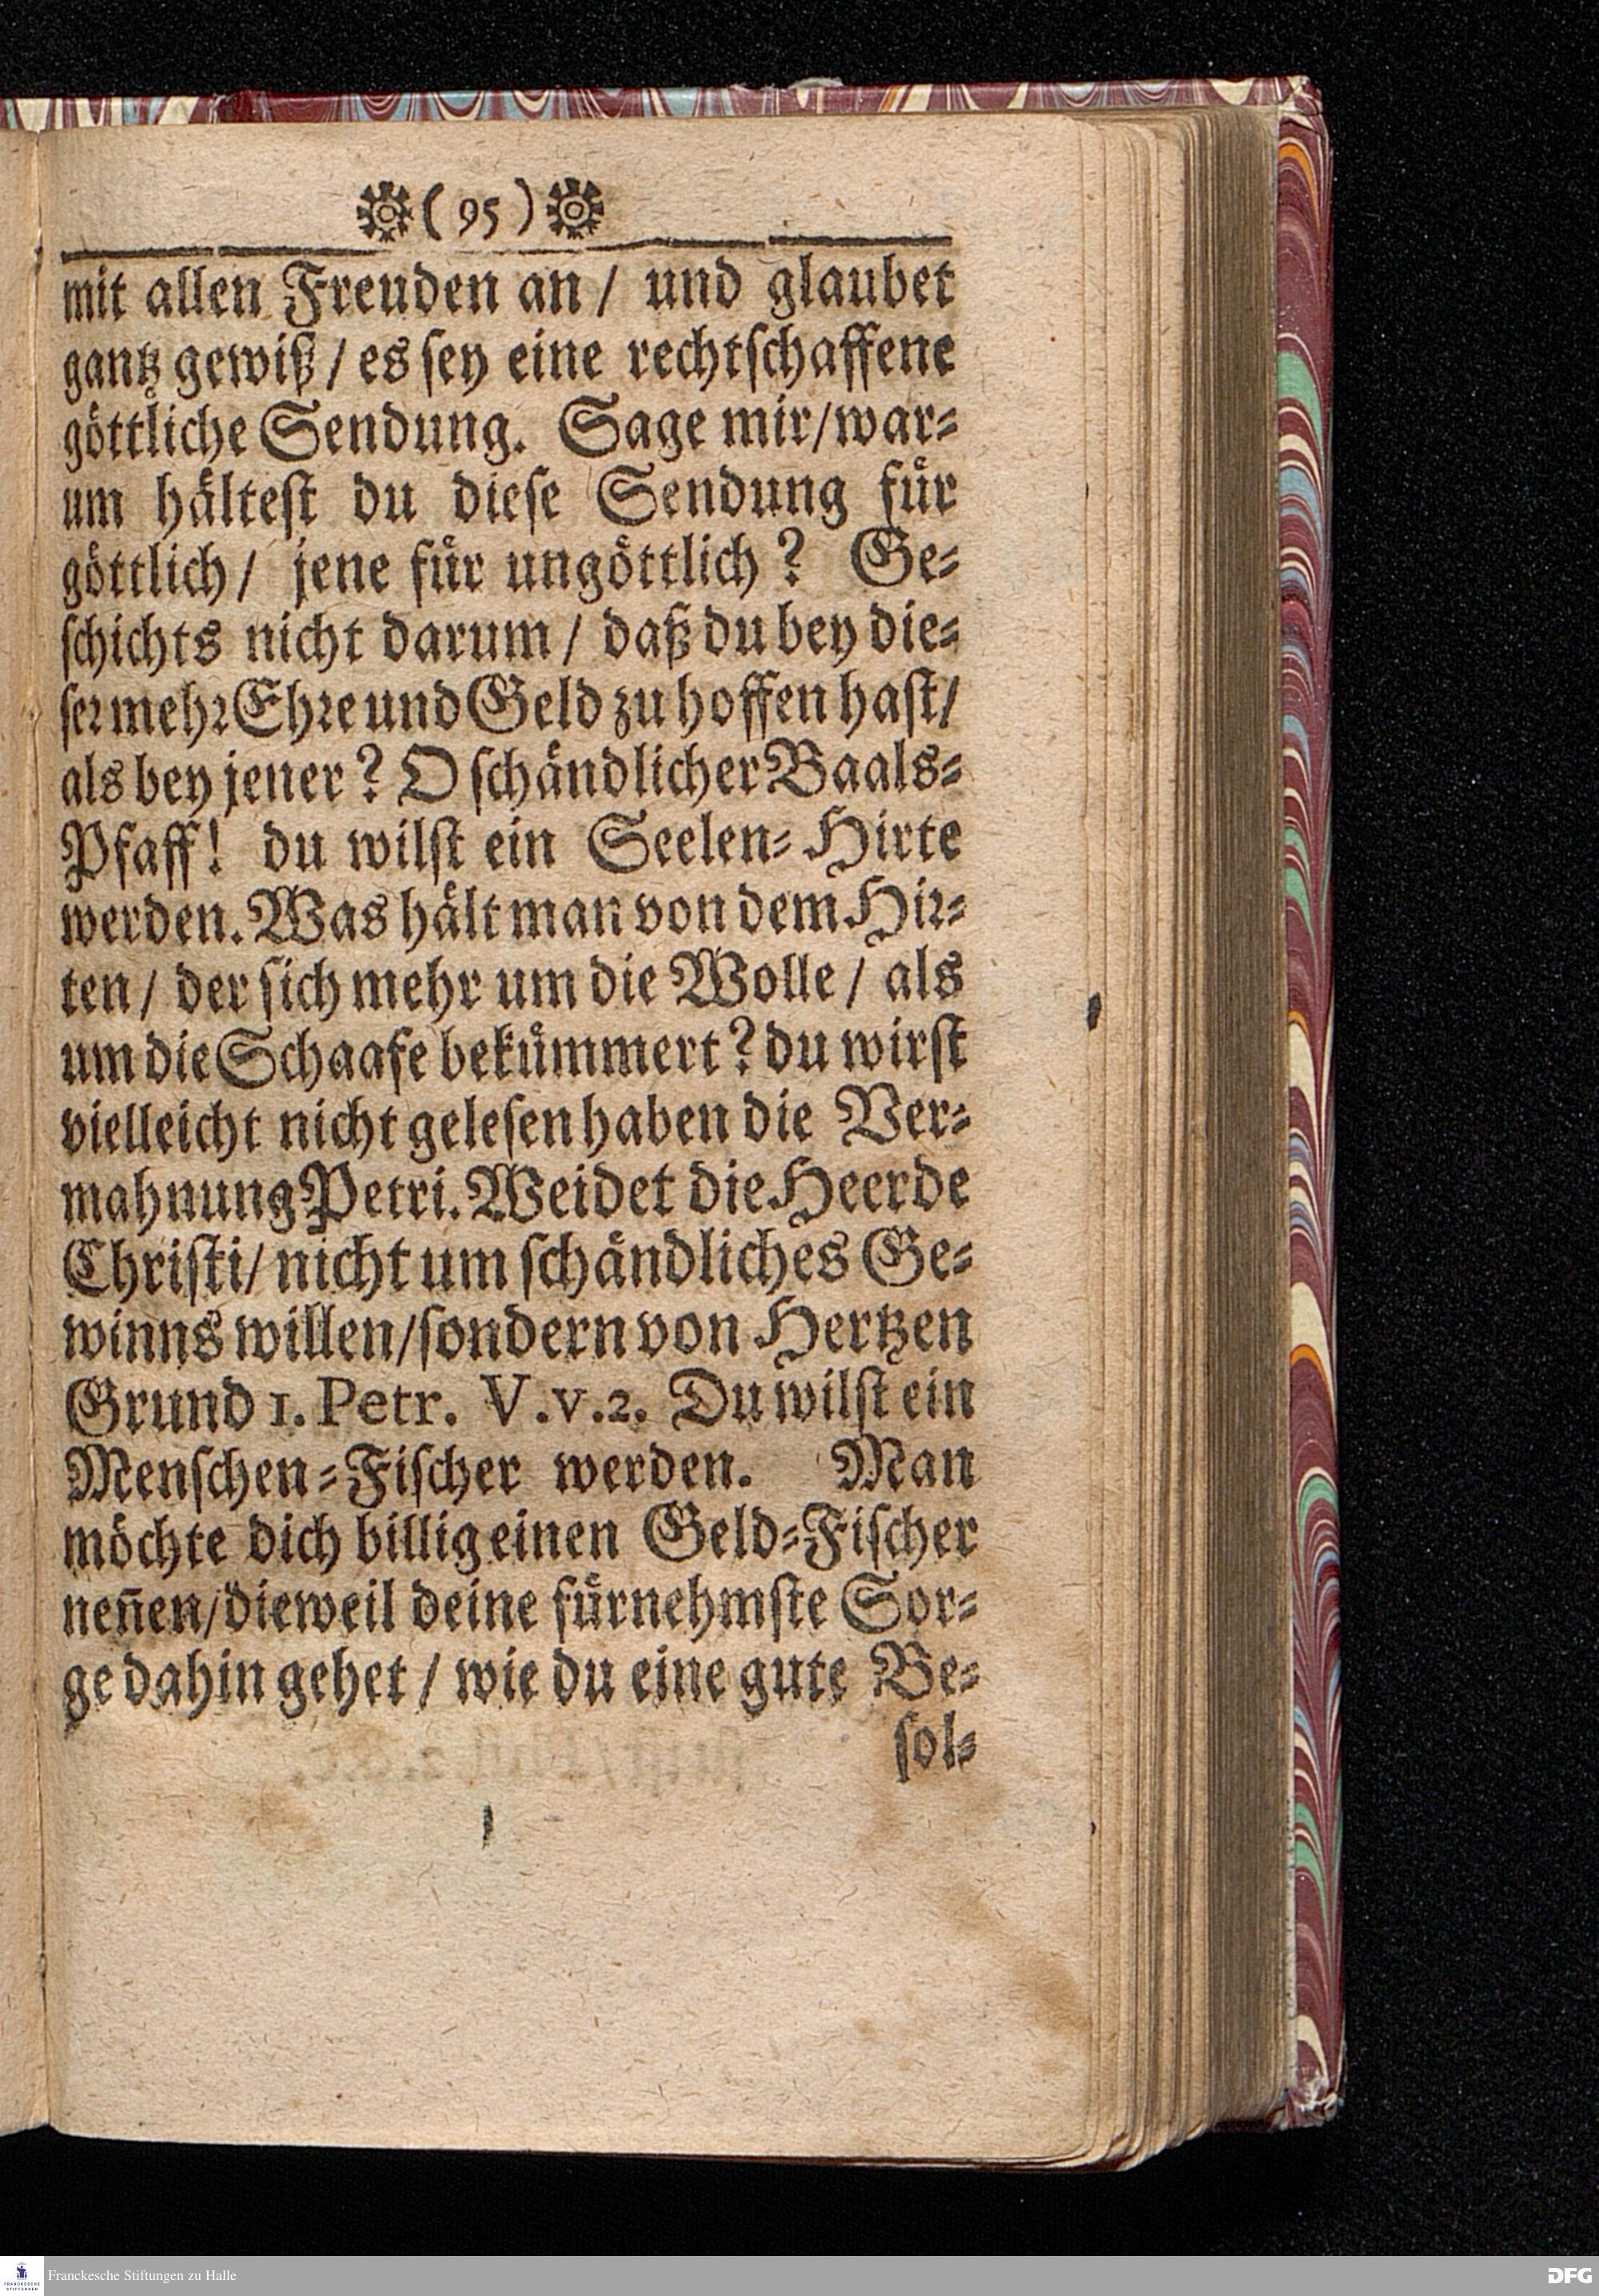 (95)
mit allen Freuden an / und glaubet
gantz gewiß / es ſey eine rechtſchaffene
goͤttliche Sendung. Sage mir/war⸗
um haͤlteſt du dieſe Sendung fuͤr
goͤttlich / jene fuͤr ungoͤttlich? Ge⸗
ſchichts nicht darum / daß du bey die⸗
ſeꝛ mehꝛ Ehꝛe und Geld zu hoffen haſt/
als bey jener? O ſchaͤndlicher Baals⸗
Pfaff! du wilſt ein Seelen⸗Hirte
werden. Was haͤlt man von dem Hiꝛ⸗
ten / der ſich mehr um die Wolle / als
um die Schaafe bekuͤmmert? du wirſt
vielleicht nicht geleſen haben die Ver⸗
mahnung Petri. Weidet die Heerde
Chriſti/ nicht um ſchaͤndliches Ge⸗
winns willen/ſondern von Hertzen
Grund 1. Petr. V.v.2. Du wilſt ein
Menſchen⸗Fiſcher werden. Man
moͤchte dich billig einen Geld⸗Fiſcher
neñen/dieweil deine fuͤrnehmſte Sor⸗
ge dahin gehet / wie du eine gute Be⸗
ſol⸗
FRANCKESCHE
STIFTUNGEN
Franckesche Stiftungen zu Halle
DFG